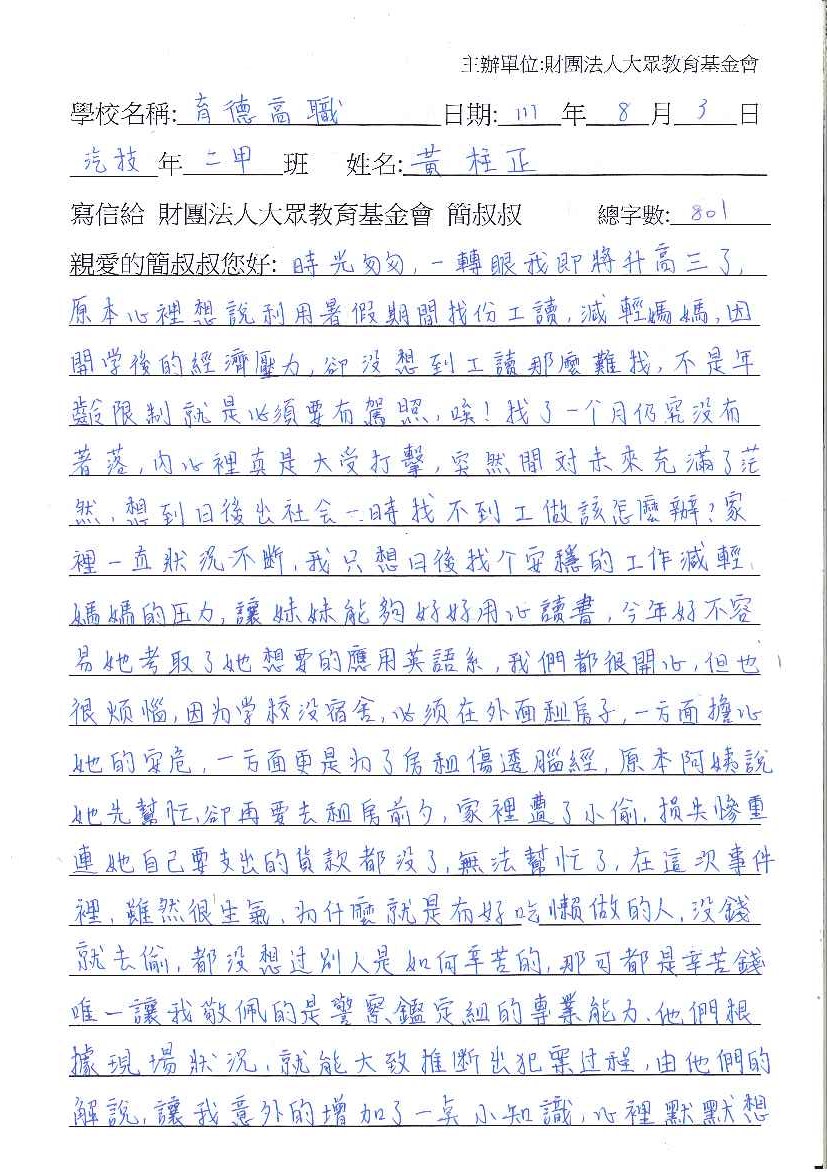 主辦單位:財團法人大眾教育基金會
學校名稱: 育德高職 日期: 111 年 8 月 3 日
汽技 年 二甲 班 姓名: 黃柱正
寫信給 財團法人大眾教育基金會 簡叔叔 總字數: 801
親愛的簡叔叔您好: 時光匆匆,一轉眼我即將升高三了,
原本心裡想說利用暑假期間找份工讀,減輕媽媽,因
開学後的經濟壓力,卻没想到工讀那麼難找,不是年
齡限制就是必須要有駕照,唉!找了一个月仍究没有
著落,內心裡真是大受打擊,突然間对未來充滿了茫
然,想到日後出社会一時找不到工做該怎麼辦?家
裡一直狀況不斷,我只想日後找个安穩的工作減輕
媽媽的压力,讓妹妹能夠好好用心讀書,今年好不容
易她考取了她想要的應用英語系,我們都很開心,但也
很烦惱,因为学校没宿舍,必须在外面租房子,一方面擔心
她的安危,一方面更是为了房租傷透腦經,原本阿姨說
她先幫忙,卻再要去租房前夕,家裡遭了小偷,損失慘重
連她自己要支出的貨款都没了,無法幫忙了,在這次事件
裡,雖然很生氣,为什麼就是有好吃懶做的人,没錢
就去偷,都没想过别人是如何辛苦的,那可都是辛苦錢
唯一讓我敬佩的是警察鑑定組的專業能力,他們根
據現場狀況,就能大致推斷出犯案过程,由他們的
解說,讓我意外的增加了一点小知識,心裡默默想